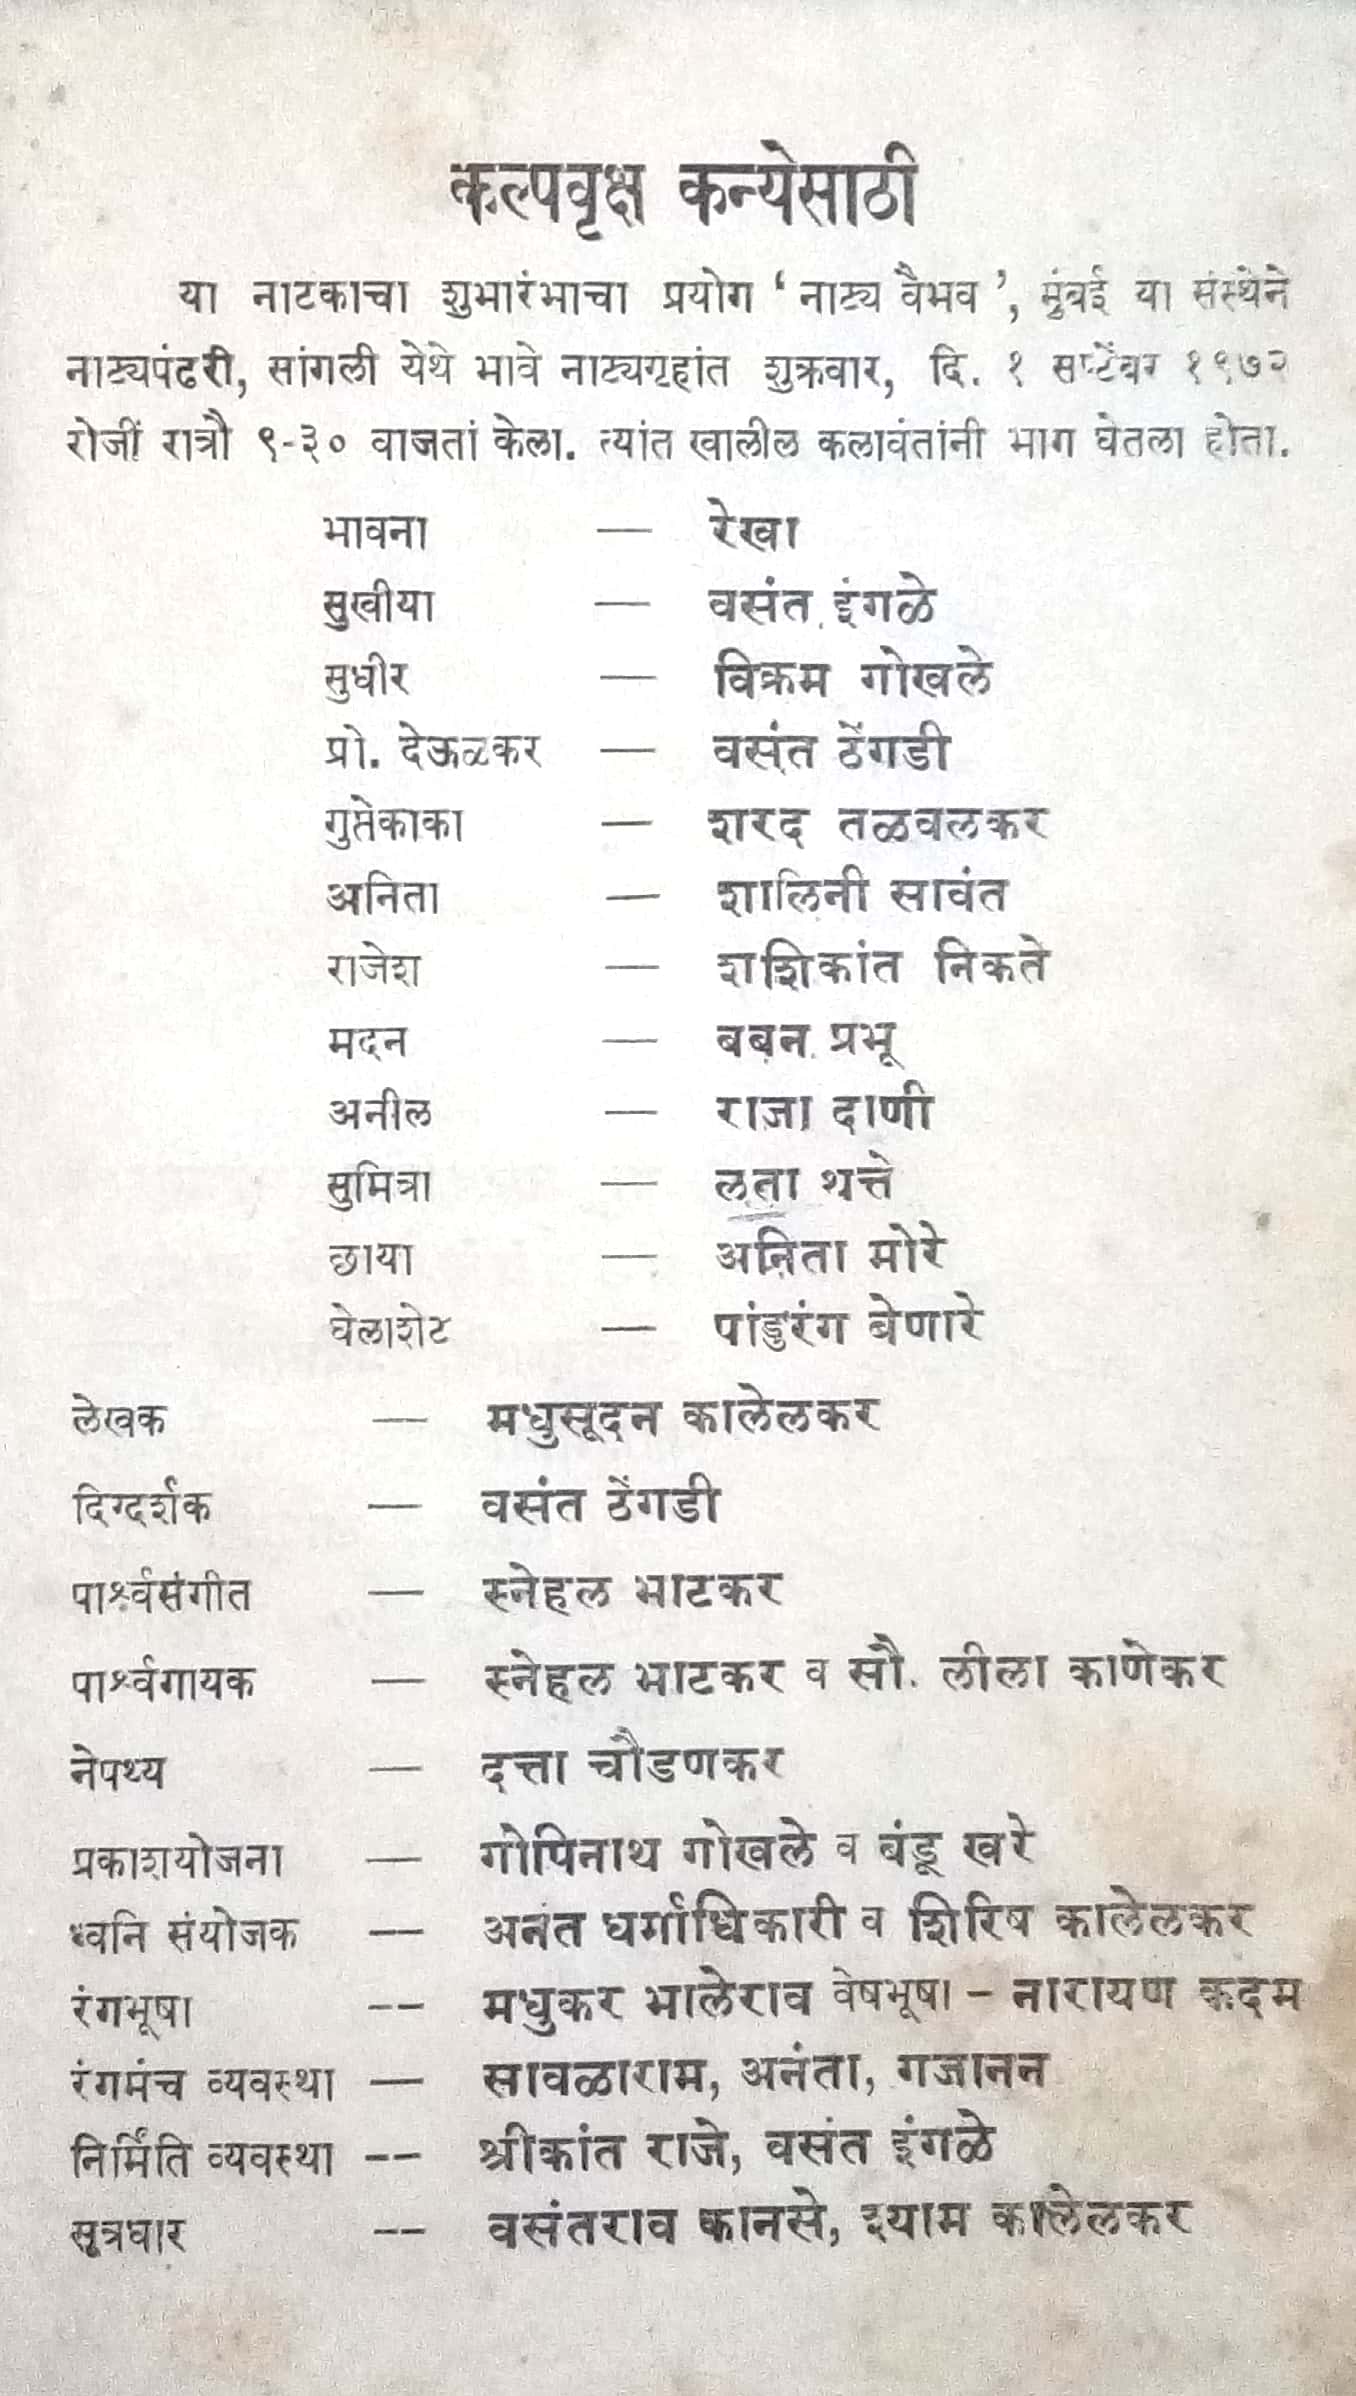 कल्पवृक्ष कन्येसाठी
या नाटकाचा शुभारंभाचा प्रयोग ‘ नाट्य वैभव ’, मुंबई या संस्थेने
नाट्यपंढरी, सांगली येथे भावे नाट्यगृहांत शुक्रवार, दि. १ सप्टेंबर १९७२
रोजीं रात्रौ ९-३० वाजतां केला. त्यांत खालील कलावंतांनी भाग घेतला होता.
भावना — रेखा
सुखीया — वसंत इंगळे
सुधीर — विक्रम गोखले
प्रो. देऊळकर — वसंत ठेंगडी
गुप्तेकाका — शरद तळवलकर
अनिता — शालिनी सावंत
राजेश — शशिकांत निकते
मदन — बबन प्रभू
अनील — राजा दाणी
सुमित्रा — लता थत्ते
छाया — अनिता मोरे
घेलाशेट — पांडुरंग बेणारे
लेखक — मधुसूदन कालेलकर
दिग्दर्शक — वसंत ठेंगडी
पार्श्वसंगीत — स्नेहल भाटकर
पार्श्वगायक — स्नेहल भाटकर व सौ. लीला काणेकर
नेपथ्य — दत्ता चौडणकर
प्रकाशयोजना — गोपिनाथ गोखले व बंडू खरे
ध्वनि संयोजक -- अनंत धर्माधिकारी व शिरिष कालेलकर
रंगभूषा -- मधुकर भालेराव वेषभूषा – नारायण कदम
रंगमंच व्यवस्था — सावळाराम, अनंता, गजानन
निर्मिति व्यवस्था -- श्रीकांत राजे, वसंत इंगळे
सूत्रधार -- वसंतराव कानसे, श्याम कालेलकर